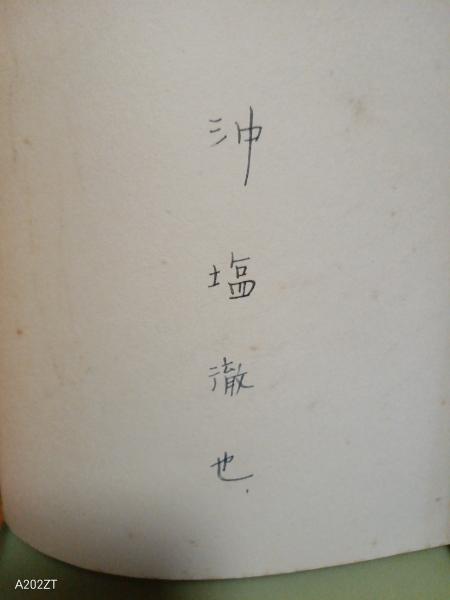 沖塩徹也.
A202ZT